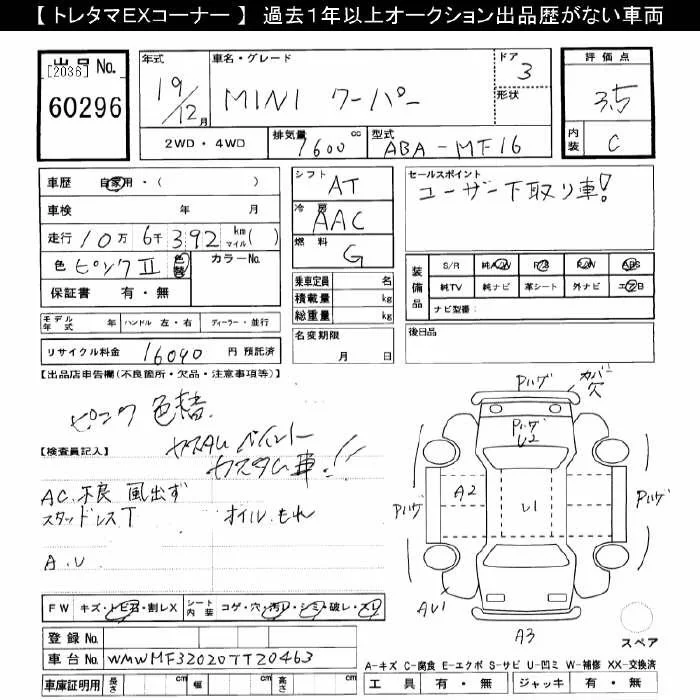 【トレタマEXコーナー】 過去1年以上オークション出品歴がない車両
出品No. [2036] 60296
年式 19/12月
車名・グレード MINI クーパー
ドア 3
形状
評価点 3.5
内装 C
2WD・4WD
排気量 1600 cc
型式 ABA-MF16
車歴 自家用・( )
車検 年 月
走行 10万 6千 392 km マイル( )
色 ピンクII 色替 カラーNo.
保証書 有・無
シフト AT
冷房 AAC
燃料 G
乗車定員 名
積載量 kg
総重量 kg
セールスポイント
ユーザー下取り車!
装備品 S/R 純A/W P/S P/W ABS
純TV 純ナビ 革シート 外ナビ エアB
ナビ型番:
モデル年式 年 ハンドル 左・右 ディーラー・並行
名変期限 月 日
後日品
リサイクル料金 16040 円 預託済
【出品店車申告欄(不良箇所・欠品・注意事項等)】
ピンク 色替
カスタムペイント
カスタム車!!
【検査員記入】
AC.不良 風出ず
スタッドレスT オイルもれ
A.U
Pハゲ カバー欠
Pハゲ U2
Pハゲ A2 U1 Pハゲ
AU1 A3
スペア
FW キズ・トビ石・割レX シート内装 コゲ・穴・汚レ・シミ・破レ・スレ
登録No.
車台No. WMWMF32020TT20463
A-キズ C-腐食 E-エクボ S-サビ U-凹ミ W-補修 XX-交換済
車庫証明用 長さ cm 幅 cm 高さ cm
工具 有・無 ジャッキ 有・無